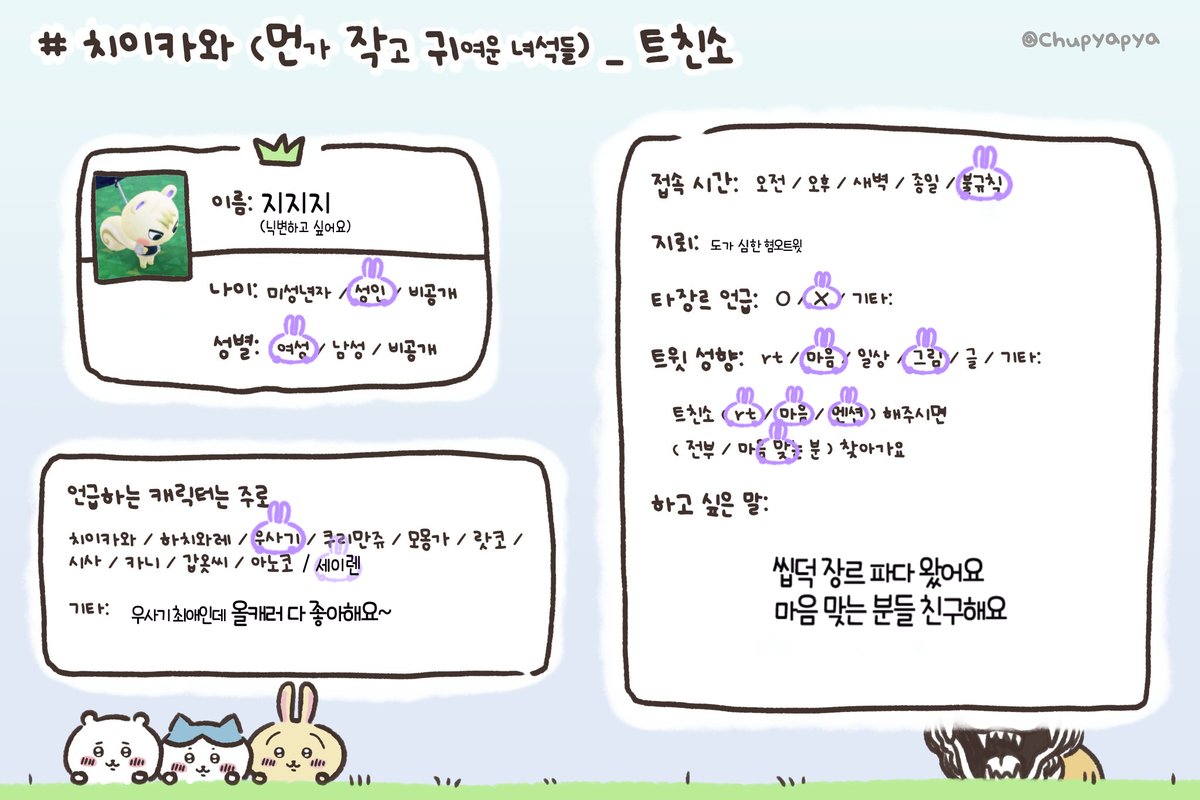 # 치이카와 (먼가 작고 귀여운 녀석들) _ 트친소
@Chupyapya
이름: 지지지
(닉변하고 싶어요)
나이: 미성년자 / 성인 / 비공개
성별: 여성 / 남성 / 비공개
언급하는 캐릭터는 주로
치이카와 / 하치와레 / 우사기 / 쿠리만쥬 / 모몽가 / 랏코 /
시사 / 카니 / 갑옷씨 / 아노코 / 세이렌
기타: 우사기 최애인데 올캐러 다 좋아해요~
접속 시간: 오전 / 오후 / 새벽 / 종일 / 불규칙
지뢰: 도가 심한 혐오트윗
타장르 언급: O / X / 기타:
트윗 성향: rt / 마음 / 일상 / 그림 / 글 / 기타:
트친소 ( rt / 마음 / 멘션 ) 해주시면
( 전부 / 마음 맞는 분 ) 찾아가요
하고 싶은 말:
씹덕 장르 파다 왔어요
마음 맞는 분들 친구해요